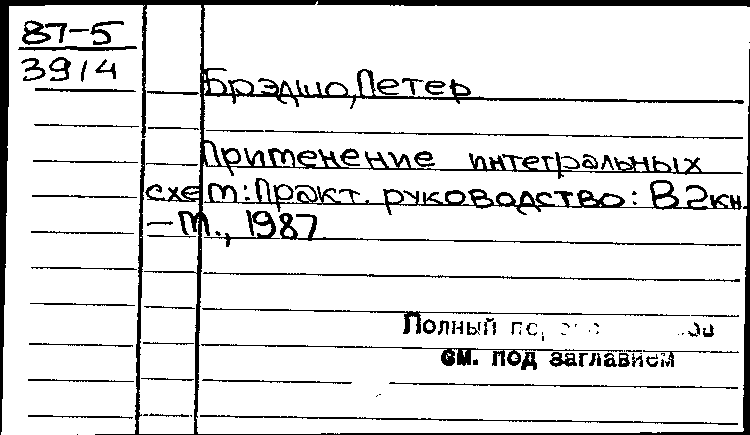 87-5
3914
Брэдшо, Петер
Применение интегральных
схем: Практ. руководство: В 2 кн.
– М., 1987
Полный
см. под заглавием